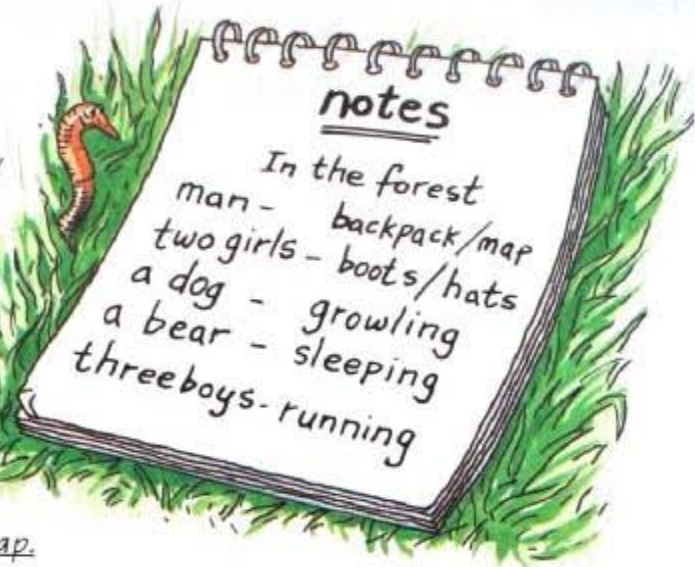 notes
In the forest
man - backpack/map
two girls - boots/hats
a dog - growling
a bear - sleeping
three boys - running
ap.